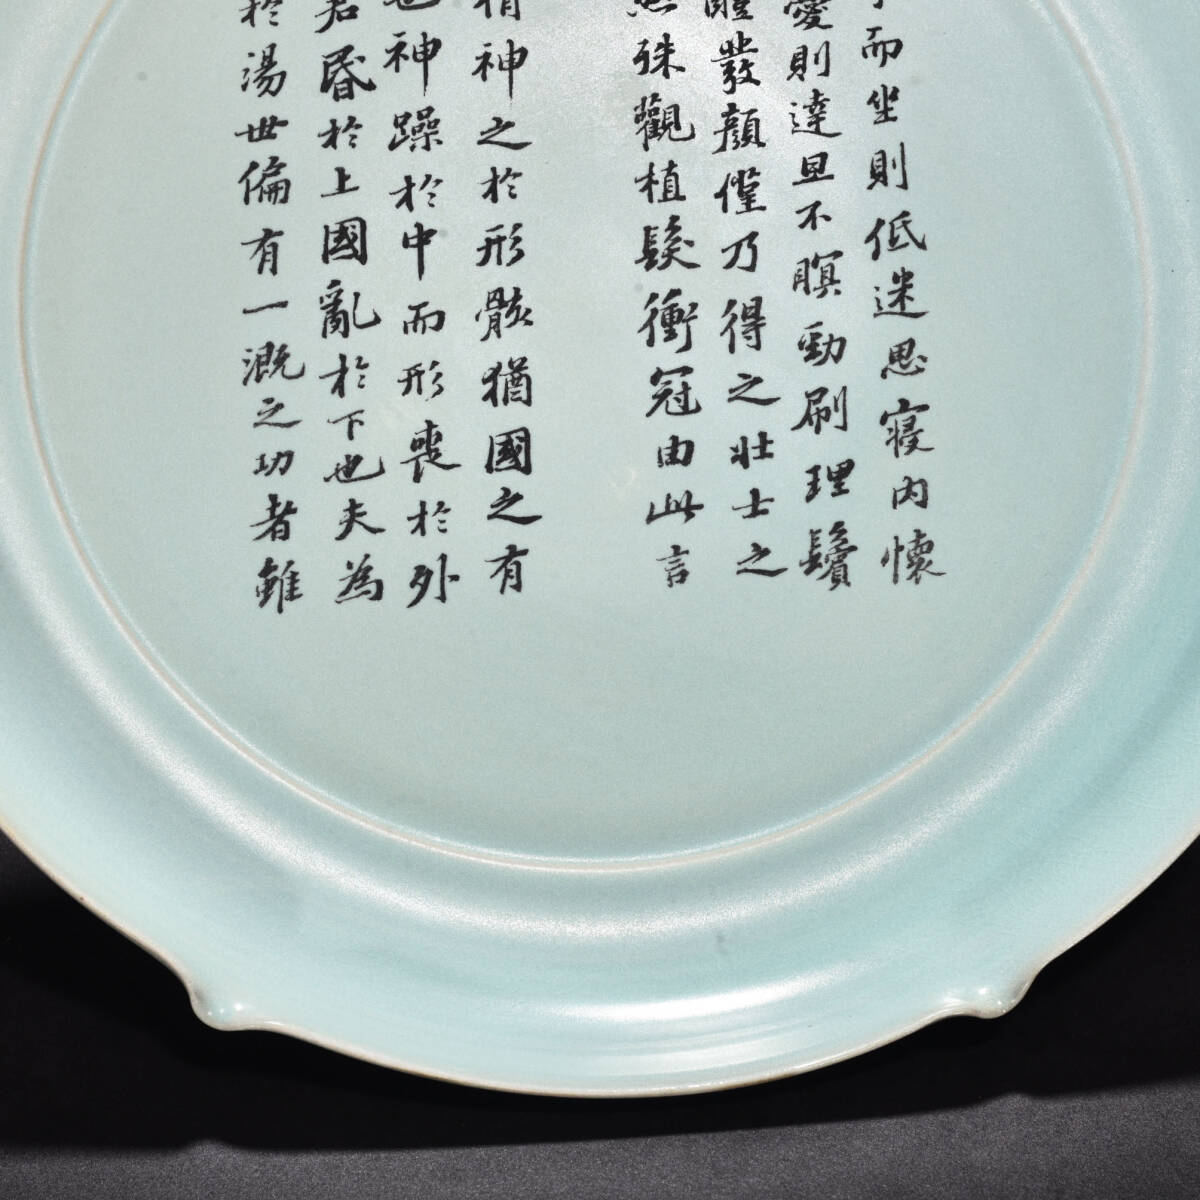 而坐則低迷思寝内懷
愛則達旦不瞑勁刷理鬢
醴發顔僅乃得之壯士之
殊觀植髮衝冠由此言
精神之於形骸猶國之有
也神躁於中而形喪於外
君昏於上國亂於下也夫為
於湯世偏有一溉之功者雖